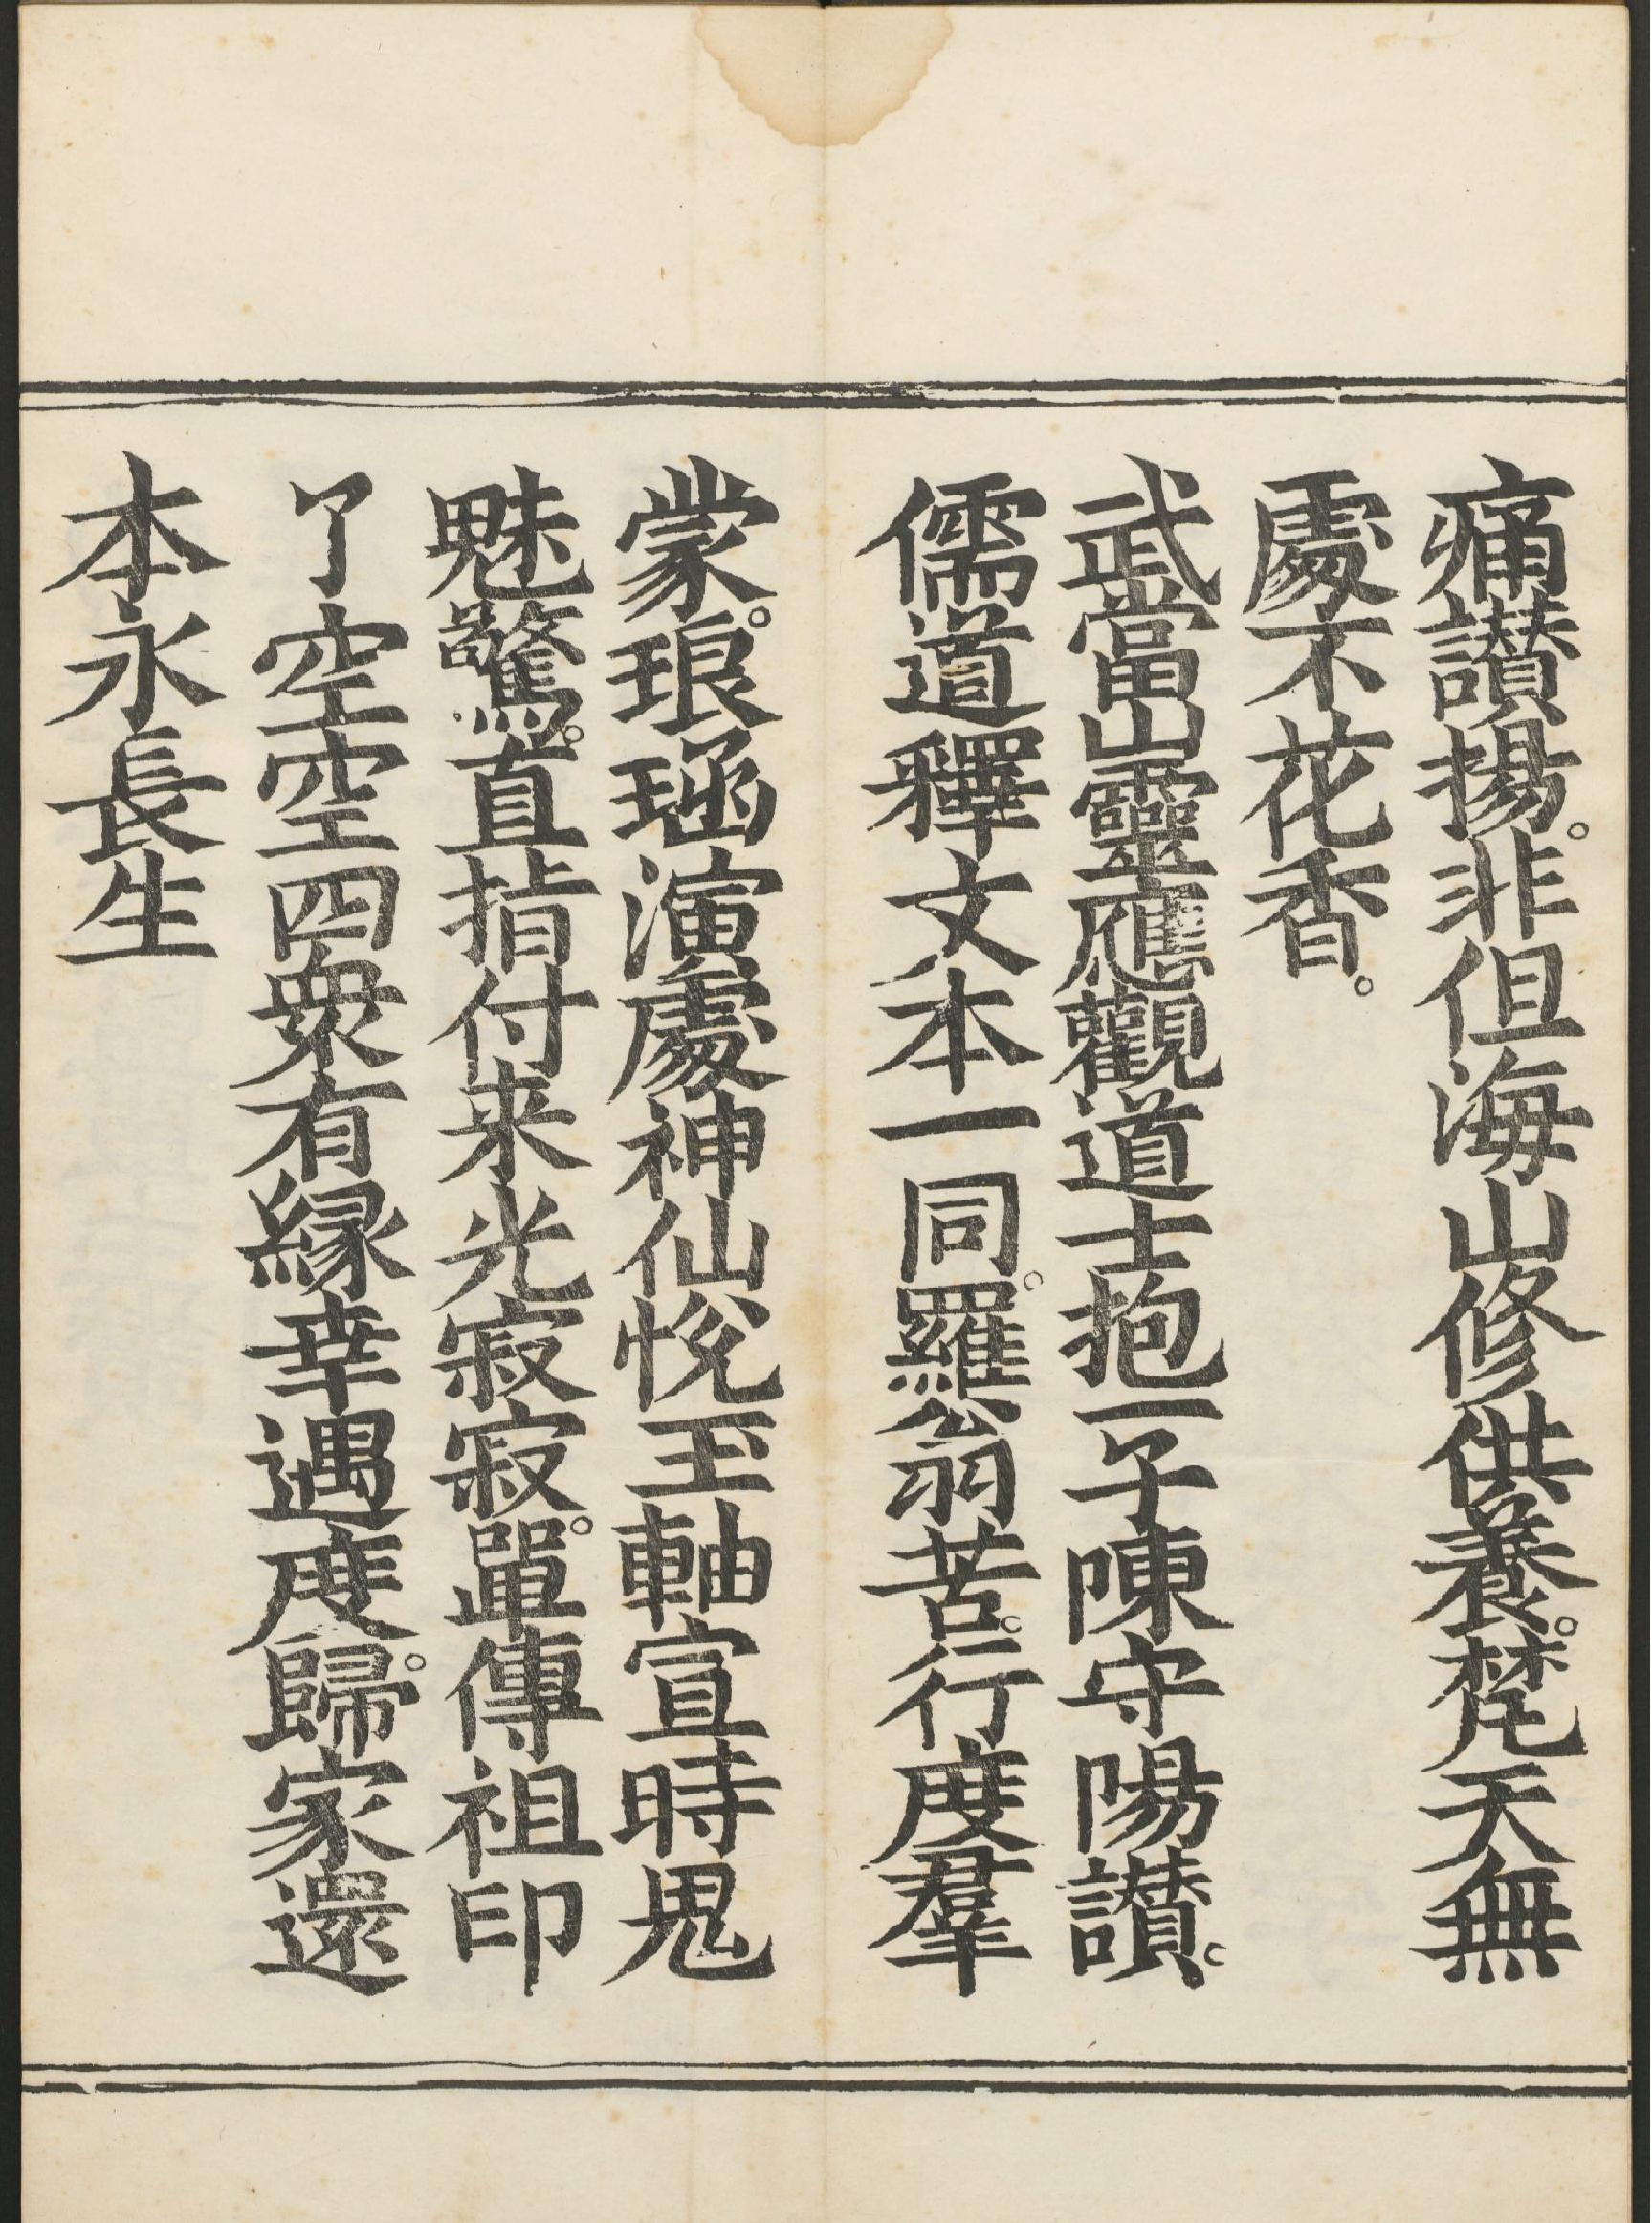 痛讃揚。非但海山修供養。梵天無
處不花香。
武當山靈應觀道士抱一子陳守陽讃。
儒道釋文本一同。羅翁苦。行度羣
蒙。琅函演處神仙悅玉軸宣時鬼
魅驚。直指付来光寂寂。單傳祖印
了空空四衆有緣幸遇度歸。家還
本永長生